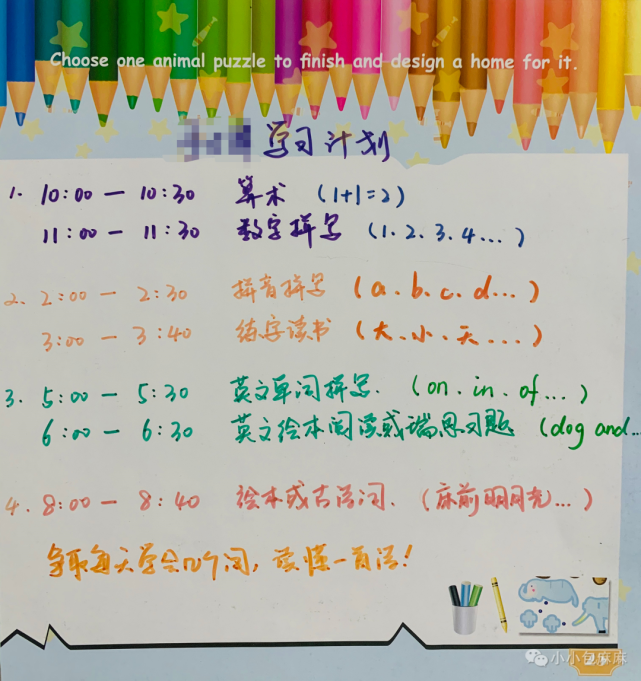 Choose one animal puzzle to finish and design a home for it.
学习计划
1. 10:00 — 10:30 算术 (1+1=2)
11:00 — 11:30 数字拼写 (1.2.3.4...)
2. 2:00 — 2:30 拼音拼写 (a、b、c、d...)
3:00 — 3:40 练字读书 (大、小、天....)
3. 5:00 — 5:30 英文单词拼写. (on. in. of...)
6:00 — 6:30 英文绘本阅读或瑞思习题 (dog and...
4. 8:00 — 8:40 绘本或古诗词. (床前明月光...)
争取每天学会几个词, 读懂一首诗!
小小包麻麻